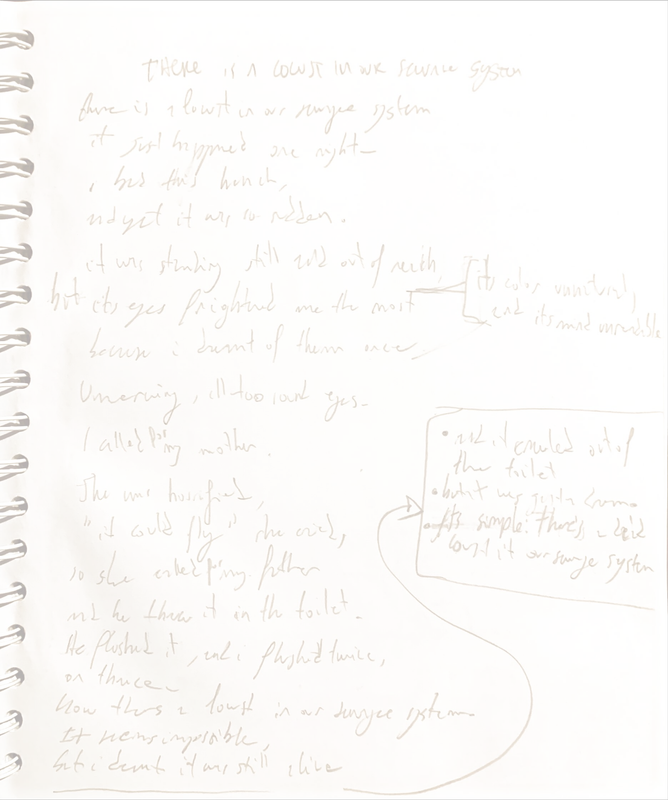 THERE IS A LOCUST IN OUR SEWAGE SYSTEM
there is a locust in our sewage system
it just happened one night—
i had this hunch,
and yet it was so sudden.
it was standing still and out of reach,
but its eyes frightend me the most
its color unnatural,
and its mind unreadable
because i dreamt of them once,
Unnerving, all too round eyes—
I called for my mother.
She was horrified,
"it could fly" she cried,
so she called for my father
and he threw it in the toilet.
He flushed it, and i flushed twice,
or thrice—
Now theres a locust in our sewage system—
It seems impossible,
but i dreamt it was still alive
• and it crawled out of
the toilet
• but it was just a dream
• Its simple: there's a
locust in our sewage system